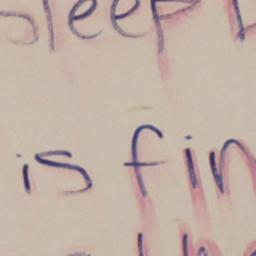 sleep
is fin